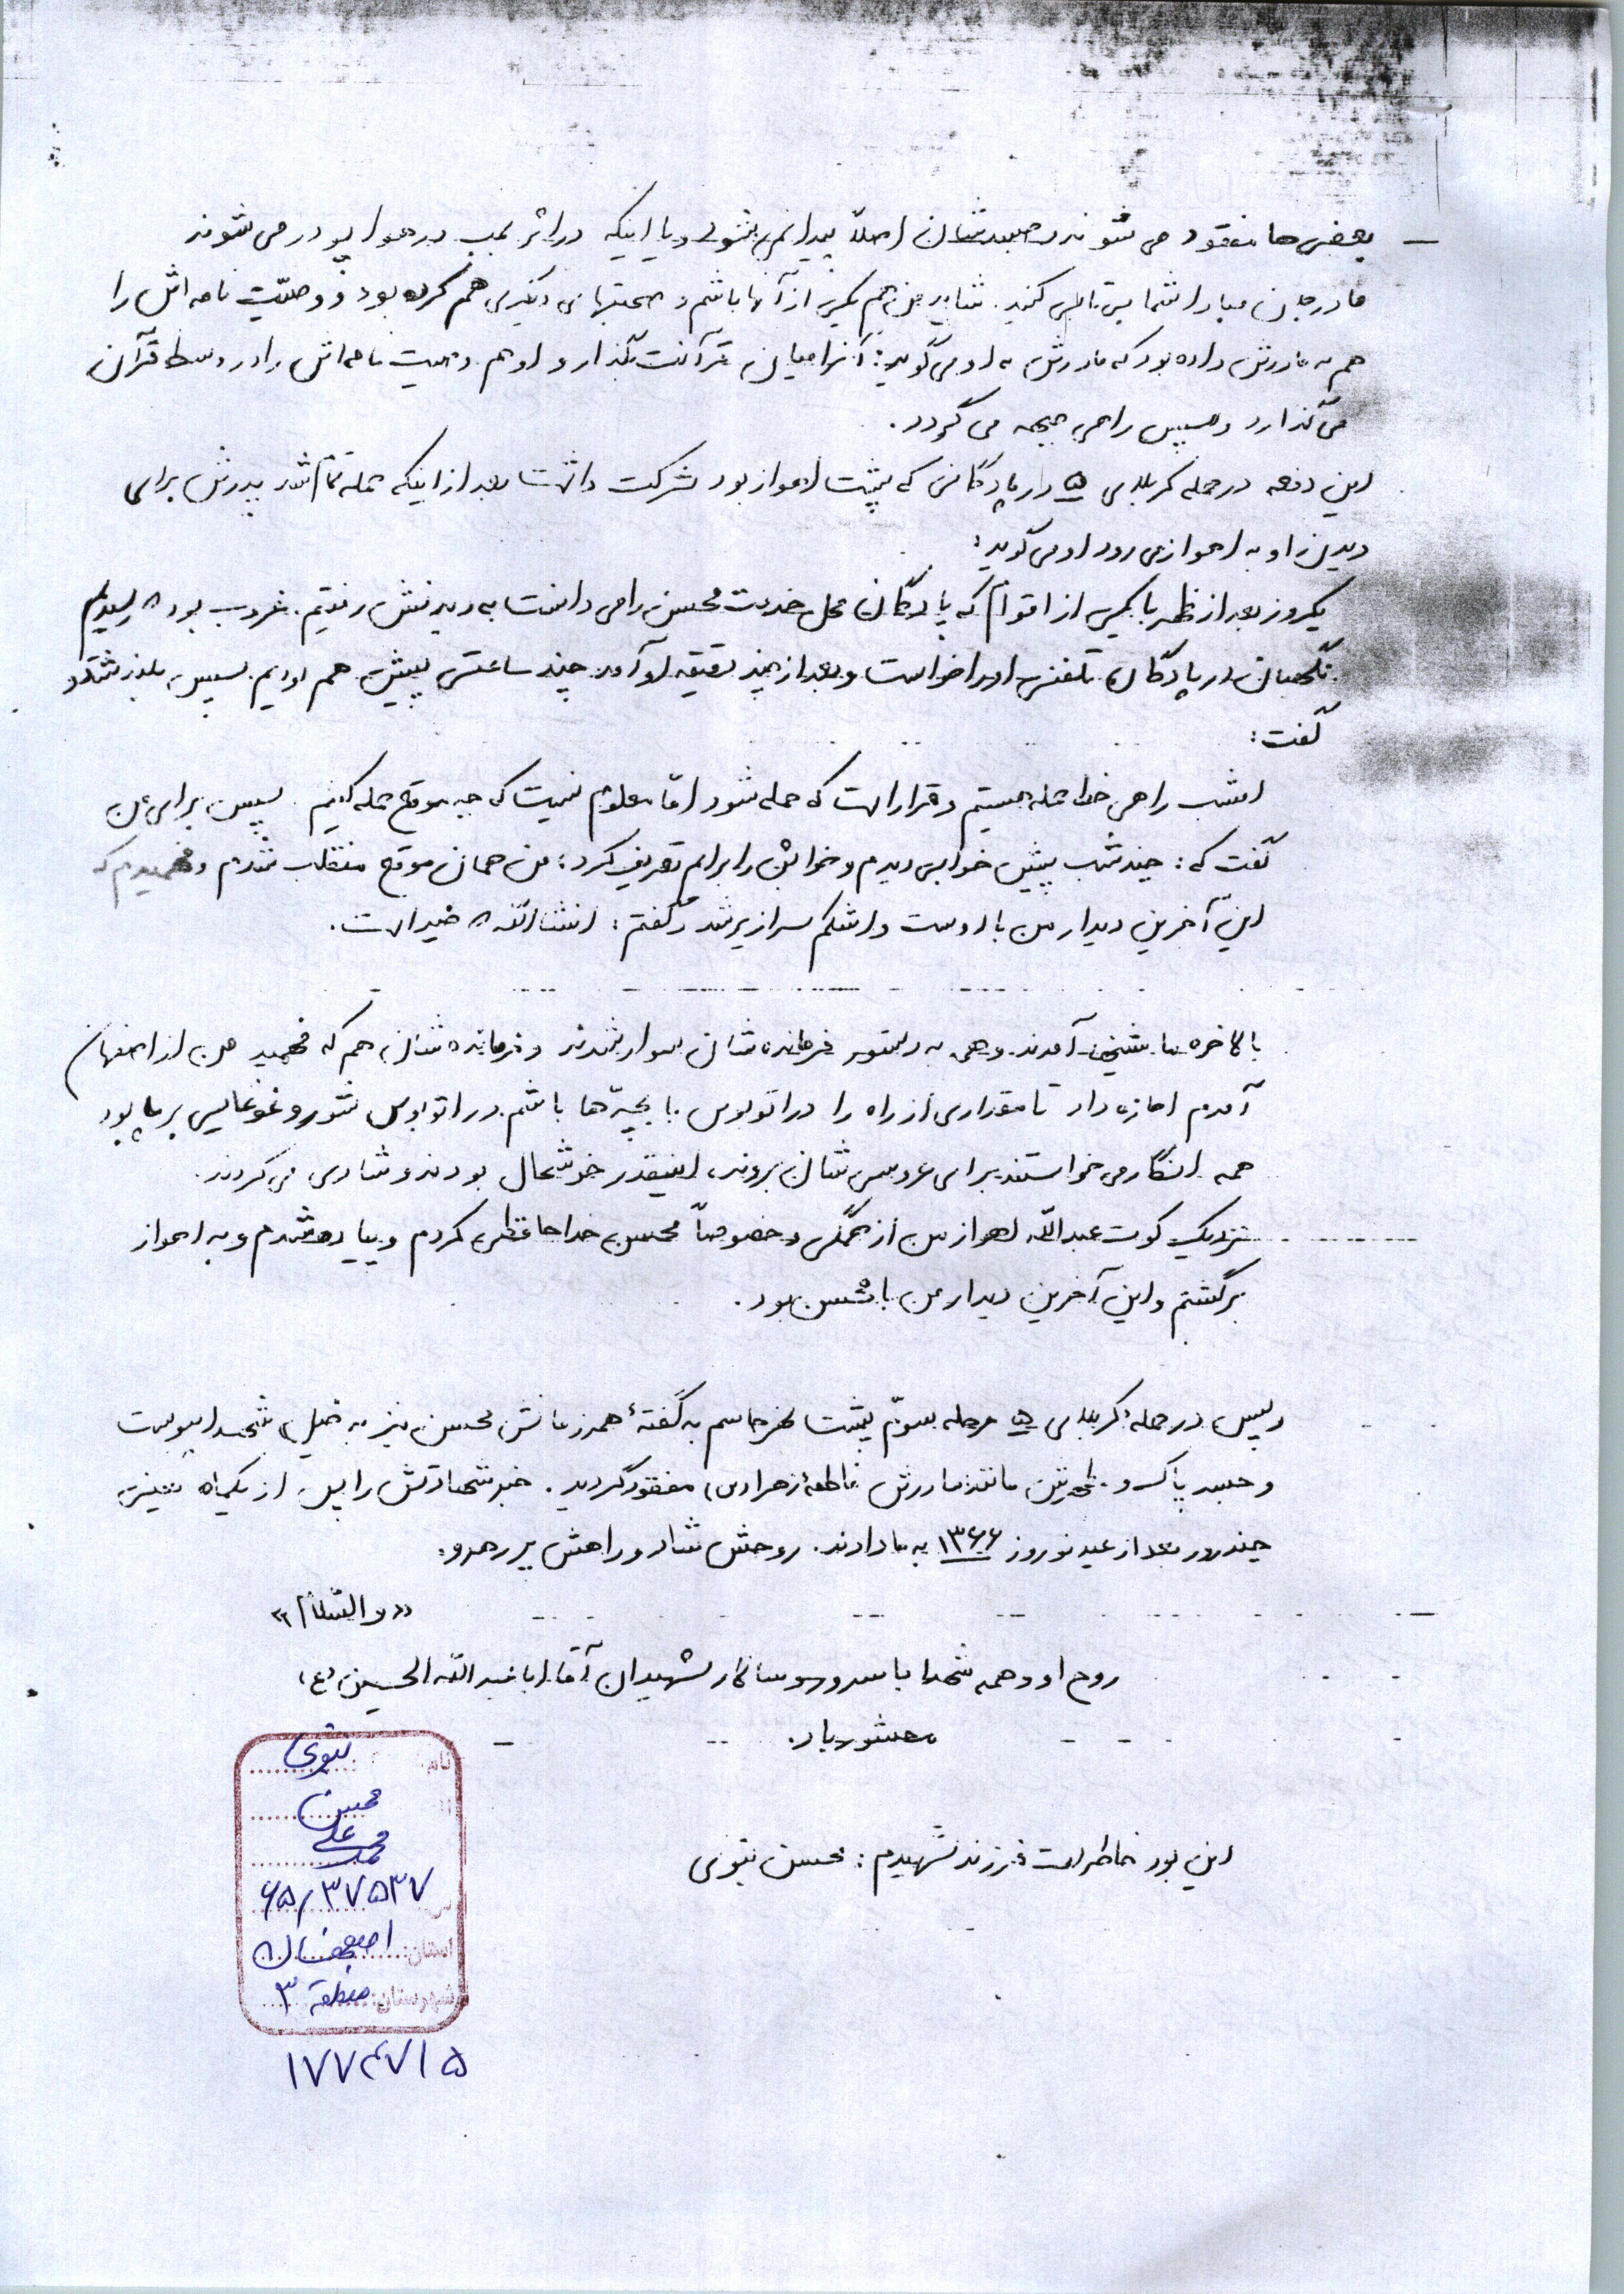 بعضی ها مفقود می شوند و جسدشان اصلاً پیدا نمی شود و یا اینکه در اثر بمب در هوا پودر می شوند
مادر جان مبادا شما بی تابی کنید. شاید من هم یکی از آنها باشم و صحبتهای دیگری هم کرده بود و وصیّت نامه اش را
هم به مادرش داده بود که مادرش به او می گوید: آنرا میان قرآنت بگذار و او هم وصیت نامه اش را در وسط قرآن
می گذارد و سپس راهی جبهه می گردد.
این دفعه در حمله کربلای ۵ در پادگانی که پشت اهواز بود شرکت داشت بعد از اینکه حمله تمام شد پدرش برای
دیدن او به اهواز می رود او می گوید:
یکروز بعد از ظهر با یکی از اقوام که پادگان محل خدمت محسن را می دانست به دیدنش رفتیم. غروب بود رسیدیم
نگهبان در پادگان تلفنی او را خواست و بعد از چند دقیقه او آمد چند ساعتی پیش هم بودیم سپس بلند شد و
گفت:
امشب راهی خط حمله هستیم و قرار است که حمله شود امّا معلوم نیست که چه موقع حمله کنیم. سپس برای من
گفت که: چند شب پیش خوابی دیدم و خوابش را برایم تعریف کرد: من همان موقع منقلب شدم و فهمیدم که
این آخرین دیدار من با اوست و اشکم سرازیر شد و گفتم: انشاالله خیر است.
بالاخره ماشین آمدند و همه به دستور فرمانده شان سوار شدند و فرمانده شان هم که فهمید من از اصفهان
آمدم اجازه داد تا مقداری از راه را در اتوبوس با بچّه ها باشم. در اتوبوس شور و غوغایی بر پا بود
همه انگار می خواستند برای عروسی شان بروند، اینقدر خوشحال بودند و شادی می کردند.
نزدیک کوت عبدالله اهواز من از همگی و خصوصاً محسن خداحافظی کردم و پیاده شدم و به اهواز
برگشتم و این آخرین دیدار من با محسن بود.
و سپس در حمله کربلای ۵ مرحله سوّم پشت نهر جاسم به گفتهٔ همرزمانش محسن نیز به خیل شهدا پیوست
و جسد پاک و مطهرش مانند مادرش فاطمهٔ زهرا (س) مفقود گردید. خبر شهادتش را پس از یکماه یعنی
چند روز بعد از عید نوروز ۱۳۶۶ به ما دادند. روحش شاد و راهش پر رهرو:
«والسّلام»
روح او و همه شهدا با سرور و سالار شهیدان آقا ابا عبدالله الحسین (ع)
محشور باد.
این بود خاطرات فرزند شهیدم: محسن نقوی
نام: نقوی
محسن
محمد علی
۶۵/۳۷۵۳۷
استان: اصفهان
شهرستان: منطقه ۳
۱۷۷۴۷۱۵